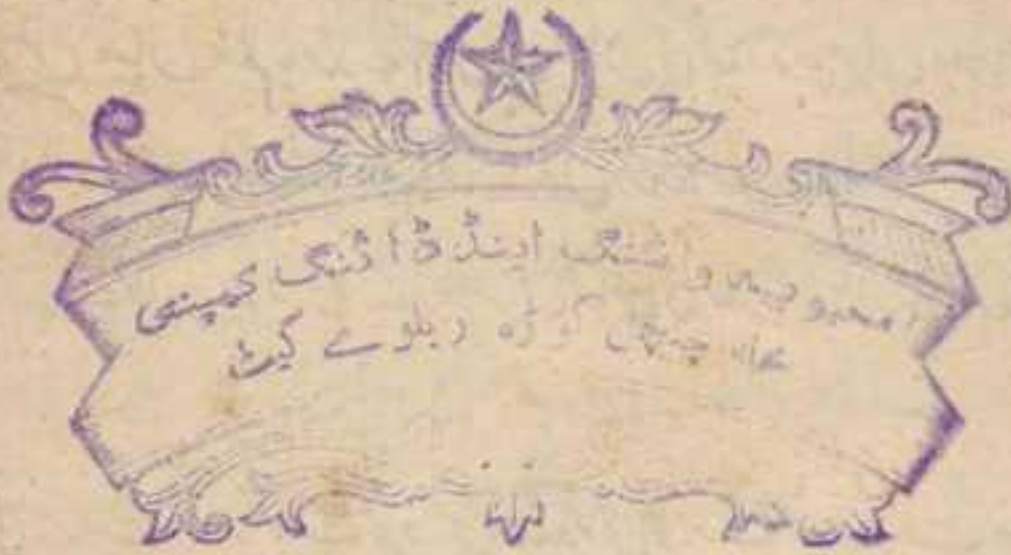 محبوبیہ واشنگ اینڈ ڈائنگ کمپنی
کاچی گوڑہ ریلوے گیٹ